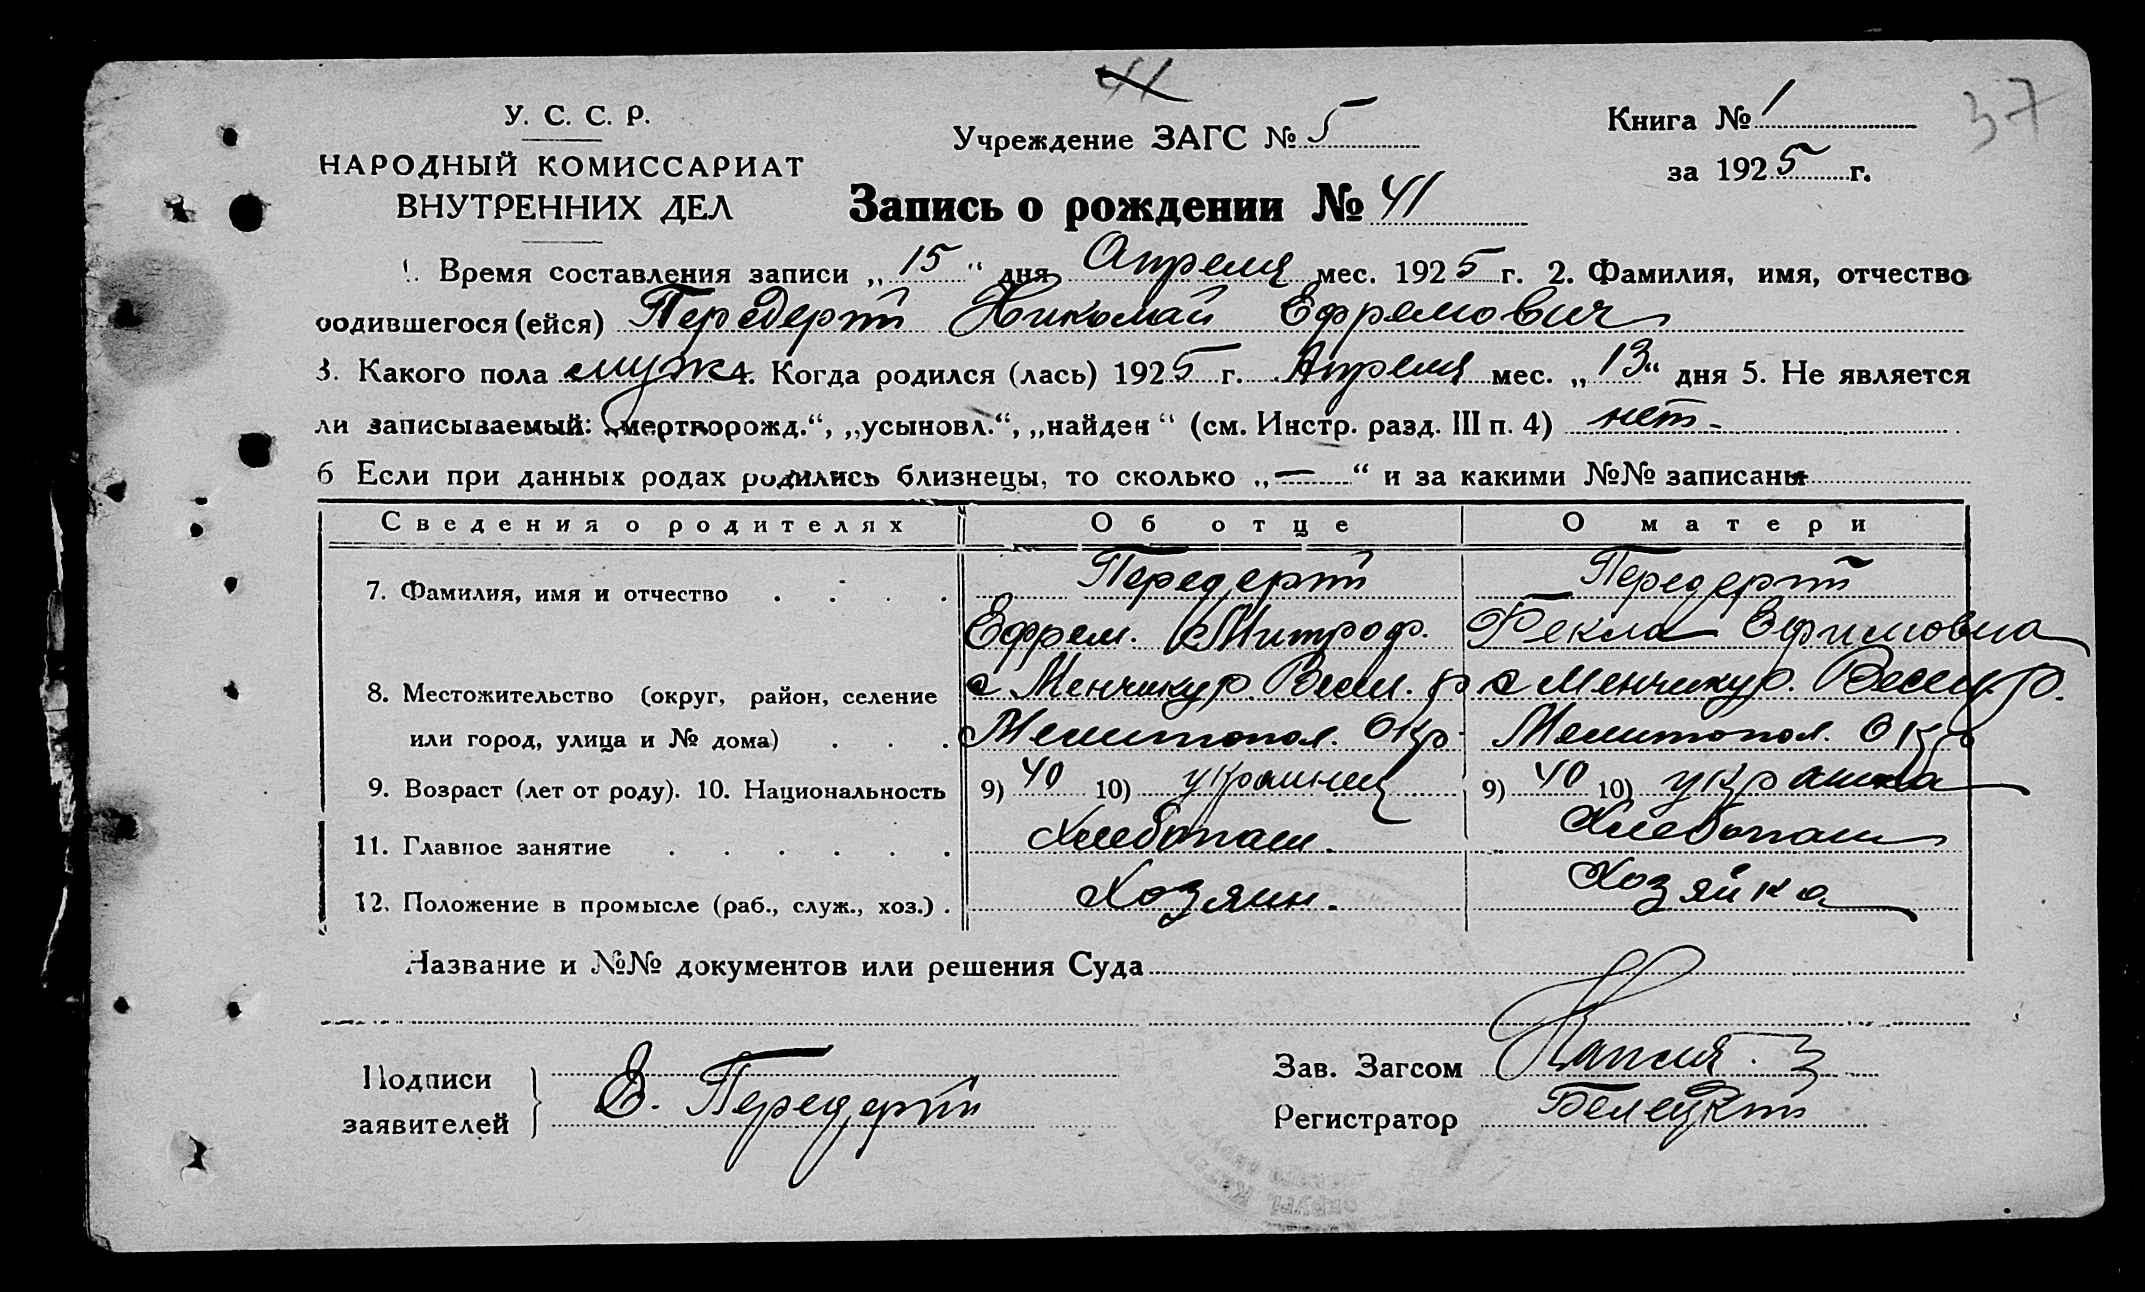 41
У. С. С. Р.
НАРОДНЫЙ КОМИССАРИАТ
ВНУТРЕННИХ ДЕЛ
Учреждение ЗАГС № 5
Книга № 1
37
за 1925 г.
Запись о рождении № 41
1. Время составления записи „15“ дня Апреля мес. 1925 г. 2. Фамилия, имя, отчество
родившегося (ейся) Передерій Николай Ефремович
3. Какого пола муж 4. Когда родился (лась) 1925 г. Апреля мес. „13“ дня 5. Не является
ли записываемый: „мертворожд.“, „усыновл.“, „найден“ (см. Инстр. разд. III п. 4) нет -
6 Если при данных родах родились близнецы, то сколько „—“ и за какими №№ записаны
Сведения о родителях Об отце О матери
7. Фамилия, имя и отчество . . . . Передерій Передерій
Ефрем. Митроф. Фекла Ефимовна
8. Местожительство (округ, район, селение с Менчикур. Весел. р с Менчикур. Весел. р.
или город, улица и № дома) . . . Мелитопол. Окр. Мелитопол. Окр
9. Возраст (лет от роду). 10. Национальность 9) 40 10) украинец 9) 40 10) украинка
11. Главное занятие . . . . . . Хлебопаш. Хлебопаш
12. Положение в промысле (раб., служ., хоз.) . Хозяин. Хозяйка
Название и №№ документов или решения Суда
Подписи
заявителей
Е. Передерій
Зав. Загсом
Регистратор Белецкій